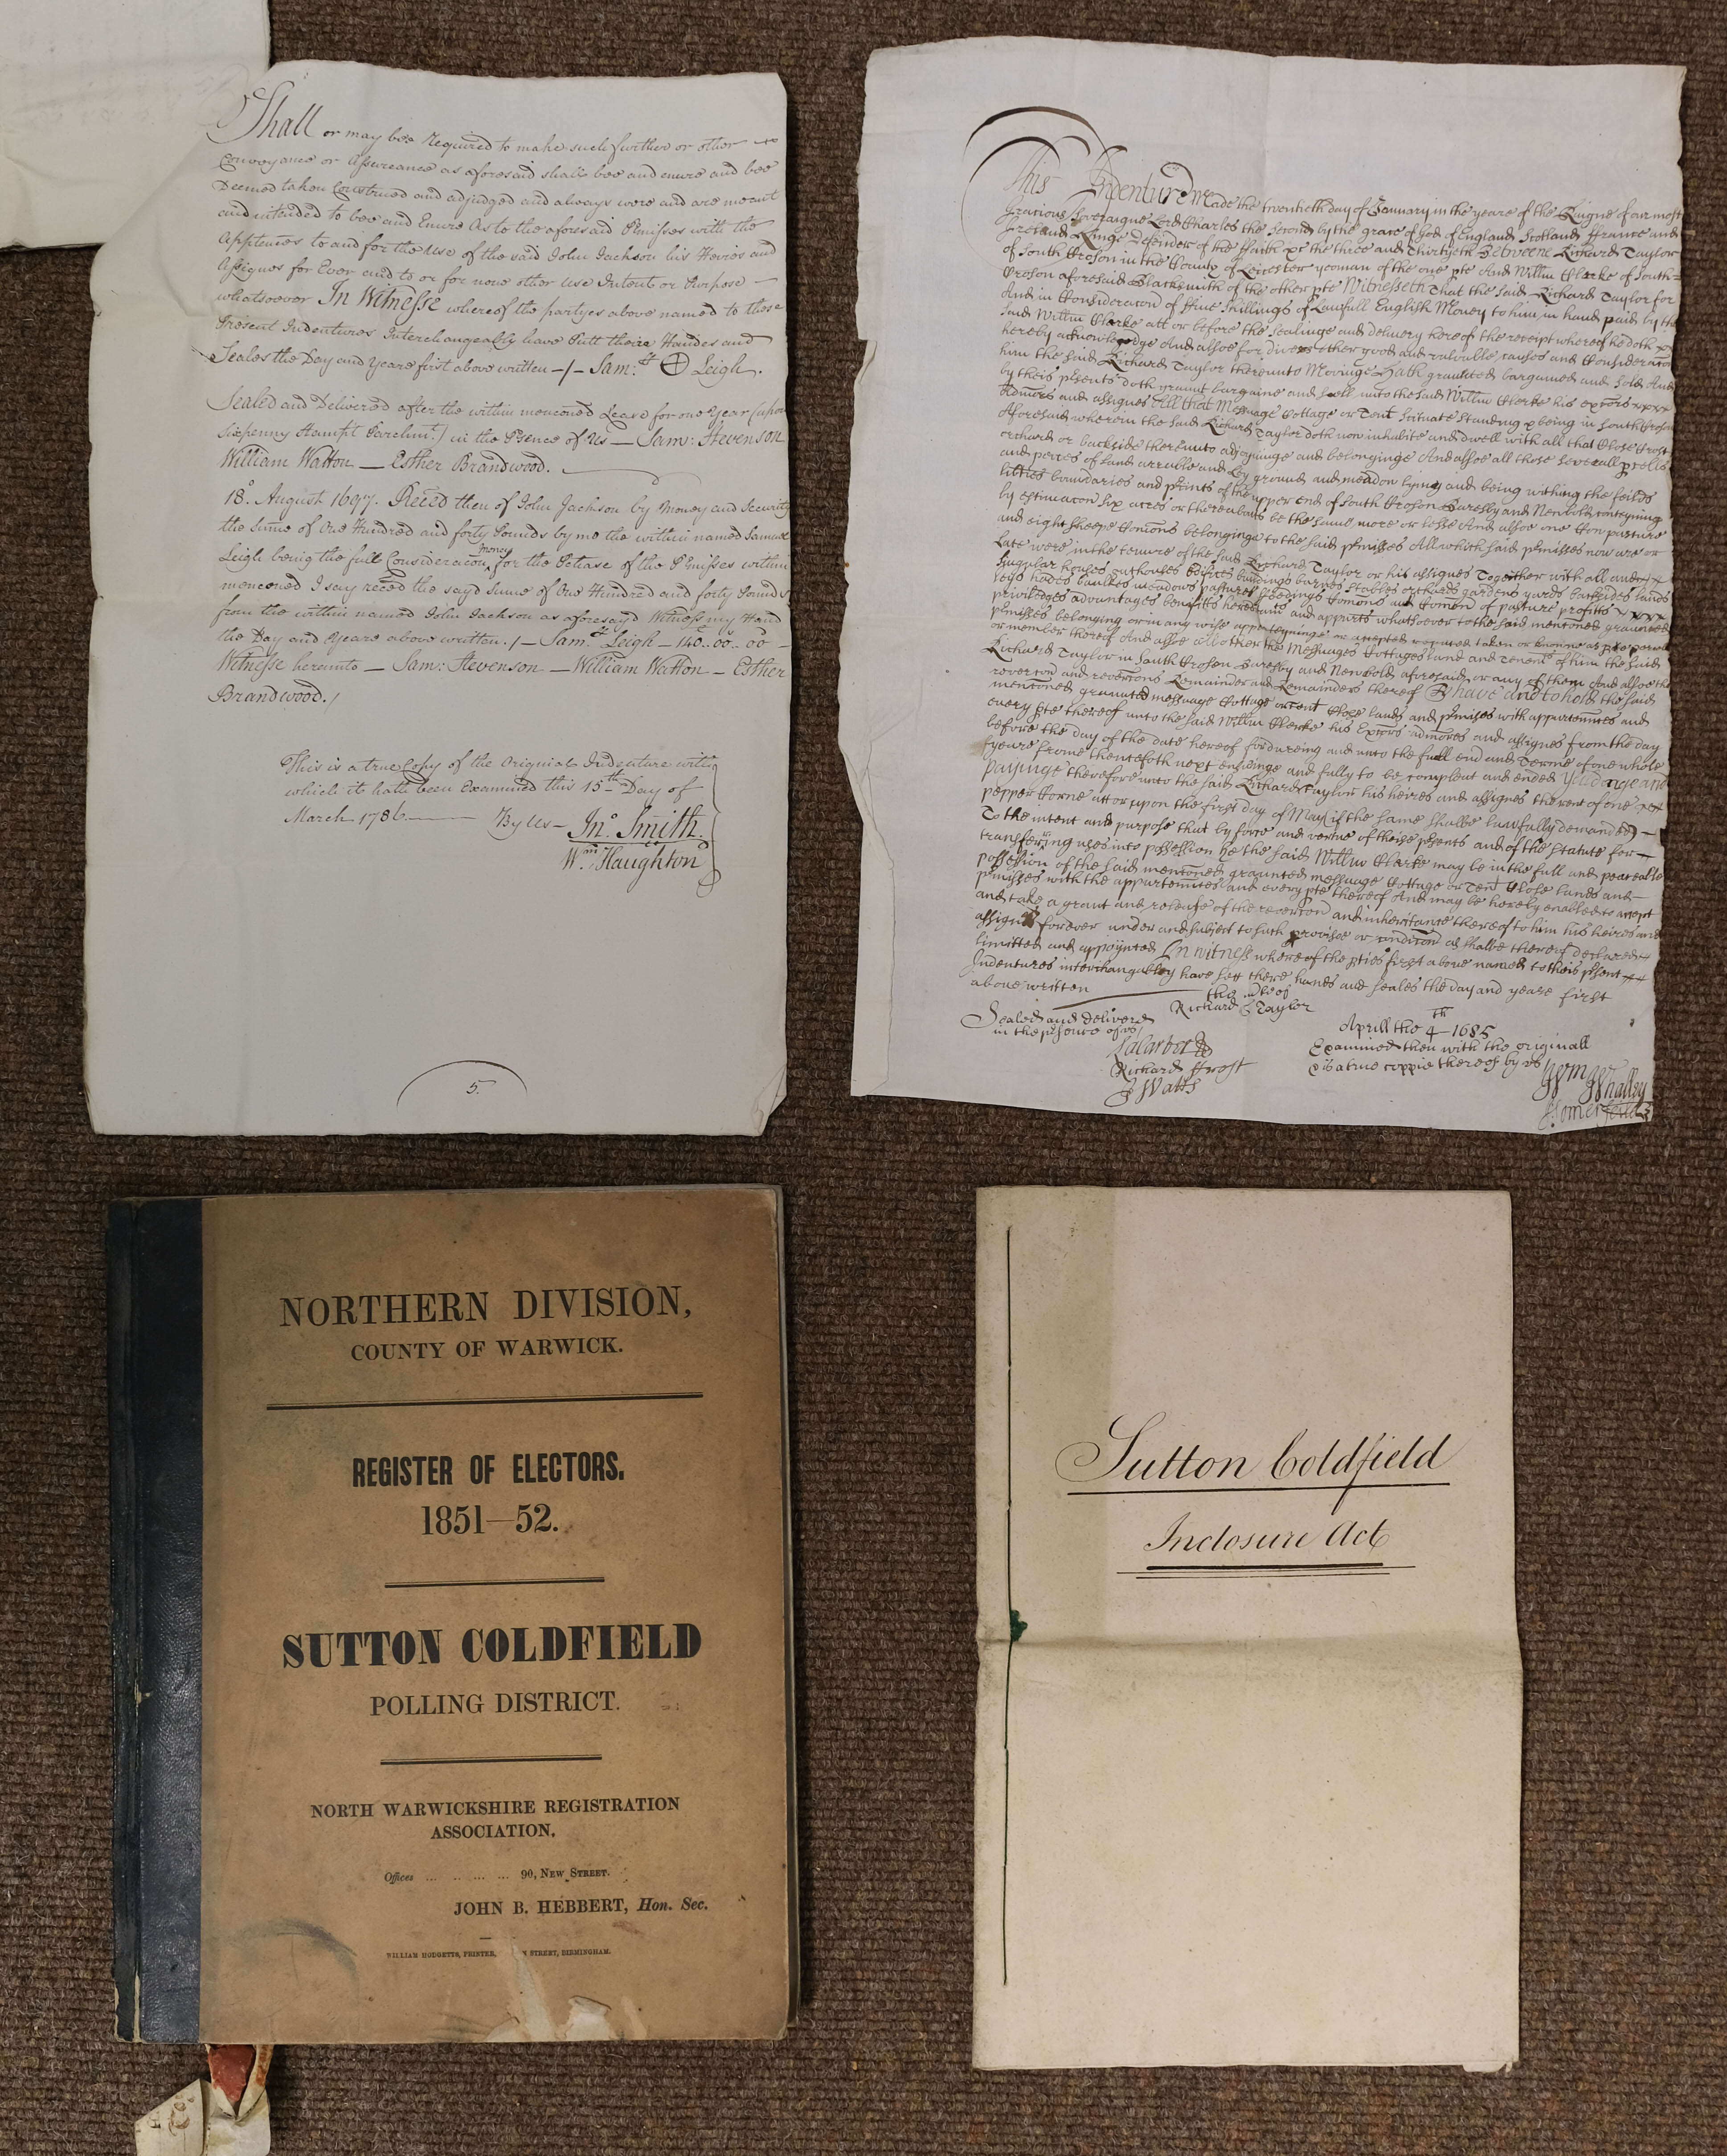 Shall or may bee Required to make such further or other
Conveyance or Assureance as aforesaid shall bee and enure and bee
Deemed taken Construed and adjudged and always were and are meant
and intended to bee and Enure As to the aforesaid P'misses with the
Apptences to and for the Use of the said John Jackson his Heires and
Assignes for Ever and to or for none other Use Intent or Purpose —
whatsoever In Witnesse whereof the partyes above named to these
Present Indentures Interchangeably have Putt theire Handes and
Seales the Day and Yeare first above written -/- Sam:ll Leigh.
Sealed and Delivered after the within menconed Lease for one Year (upon
sixpenny Stampt Parchmt.) in the P'sence of Us — Sam: Stevenson
William Watton — Esther Brandwood.
18o. August 1697. Reced then of John Jackson by Money and Security
the Sume of One Hundred and forty Pounds by me the within named Samuel
Leigh being the full Consideracon money for the P'chase of the P'misses within
menconed I say reced the sayd Sume of One Hundred and forty Pounds
from the within named John Jackson as aforesayd Witness my Hand
the Day and Yeare above written. /- Sam:ll Leigh — 140..00..00 —
Witnesse hereunto — Sam: Stevenson — William Watton — Esther
Brandwood./
This is a true Copy of the Original Indenture with
which it hath been Examined this 15th Day of
March 1786 —— By Us — Jno. Smith.
Wm. Haughton
5.
This Indenture Made the twentieth day of January in the yeare of the Raigne of our most
Gracious Soveraigne Lord Charles the Second by the grace of God of England Scotland ffrance and
Ireland Kinge Defender of the ffaith &c the three and thirtyeth Betweene Richard Taylor
of South Croson in the County of Leicester yeoman of the one pte And Willm Clarke of South=
Croson aforesaid Blacksmith of the other pte Witnesseth That the said Richard Taylor for
And in Consideracon of ffive Shillings of Lawfull English Money to him in hand paid by the
said Willm Clarke att or before the sealinge and delivery hereof the receipt whereof he doth
hereby acknowledge And alsoe for divers other good and valuable causes and Consideracons
him the said Richard Taylor thereunto Moveinge Hath graunted bargained and sold And
by theis p'sents doth graunt bargaine and sell unto the said Willm Clarke his exctors xxxx
Admors and assignes All that Messuage Cottage or Tent Scituate standing & being in South Croson
Aforesaid wherein the said Richard Taylor doth now inhabite and dwell with all that Close Croft
orchard or backside thereunto adjoyninge and belonginge And alsoe all those severall p'cells
and peeces of land arrable and Ley ground and meadow lying and being within the feilds
libties boundaries and p'cincts of the upper end of South Croson Baresby and Newbold conteyning
by estimacon six acres or thereabouts be the same more or lesse And alsoe one Cow pasture
and eight sheepe Comons belonginge to the said p'misses All which said p'misses now are or
Late were in the tenure of the said Richard Taylor or his assignes Together with all and
Singular houses outhouses edifices buildings barnes Stables orchards gardens yards backsides lands
leyes hades baulkes meadows pastures feedings Comons and Comon of pasture profitts xxxx
priviledges advantages benefitts heredtamts and appurts whatsoever to the said mentoned graunted
p'misses belonging or in any wise apperteyninge or accepted reputed taken or knowne as pte parcell
or member thereof And alsoe all other the Messuages Cottages land and tenemts of him the said
Richard Taylor in South Croson Baresby and Newbold aforesaid or any of them And alsoe the
revercon and revercons Remainder and Remainders thereof To have and to hold the said
mentoned graunted messuage Cottage or tent Close lands and p'misses with appurtennces and
every pte thereof unto the said Willm Clarke his Exctors admores and assignes from the day
before the day of the date hereof for dureing and unto the full end and Terme of one whole
yeare from thenceforth next ensueinge and fully to be compleat and ended Yeildinge and
payinge therefore unto the said Richard Taylor his heires and assignes the rent of one
pepper Corne att or upon the first day of May (if the same shalbe lawfully demanded) —
To the intent and purpose that by force and vertue of theise p'sents and of the statute for —
transferring uses into possession he the said Willm Clarke may be in the full and peaceable
possession of the said mentoned graunted messuage Cottage or Tent Close lands and —
p'misses with the appurtennces and every pte thereof And may be hereby enabled to accept
and take a grant and release of the revercon and inheritance thereof to him his heires and
assignes forever under and subject to such proviso or condicon as shalbe thereof declared
limitted and appoynted In witnesse whereof the pties first above named to theis p'sent
Indentures interchangabley have sett there hands and seales the day and yeare first
above written
the mke of
Richard Taylor
Sealed and delivered
in the p'sence of us/
Richard ffrost
J Watts
Aprill the 4th — 1685
Examined then with the originall
& is a true coppie thereof by us
George Whalley
NORTHERN DIVISION,
COUNTY OF WARWICK.
REGISTER OF ELECTORS.
1851—52.
SUTTON COLDFIELD
POLLING DISTRICT.
NORTH WARWICKSHIRE REGISTRATION
ASSOCIATION.
Offices ... .. ... ... 90, NEW STREET.
JOHN B. HEBBERT, Hon. Sec.
WILLIAM HODGETTS, PRINTER, STREET, BIRMINGHAM.
Sutton Coldfield
Inclosure Act